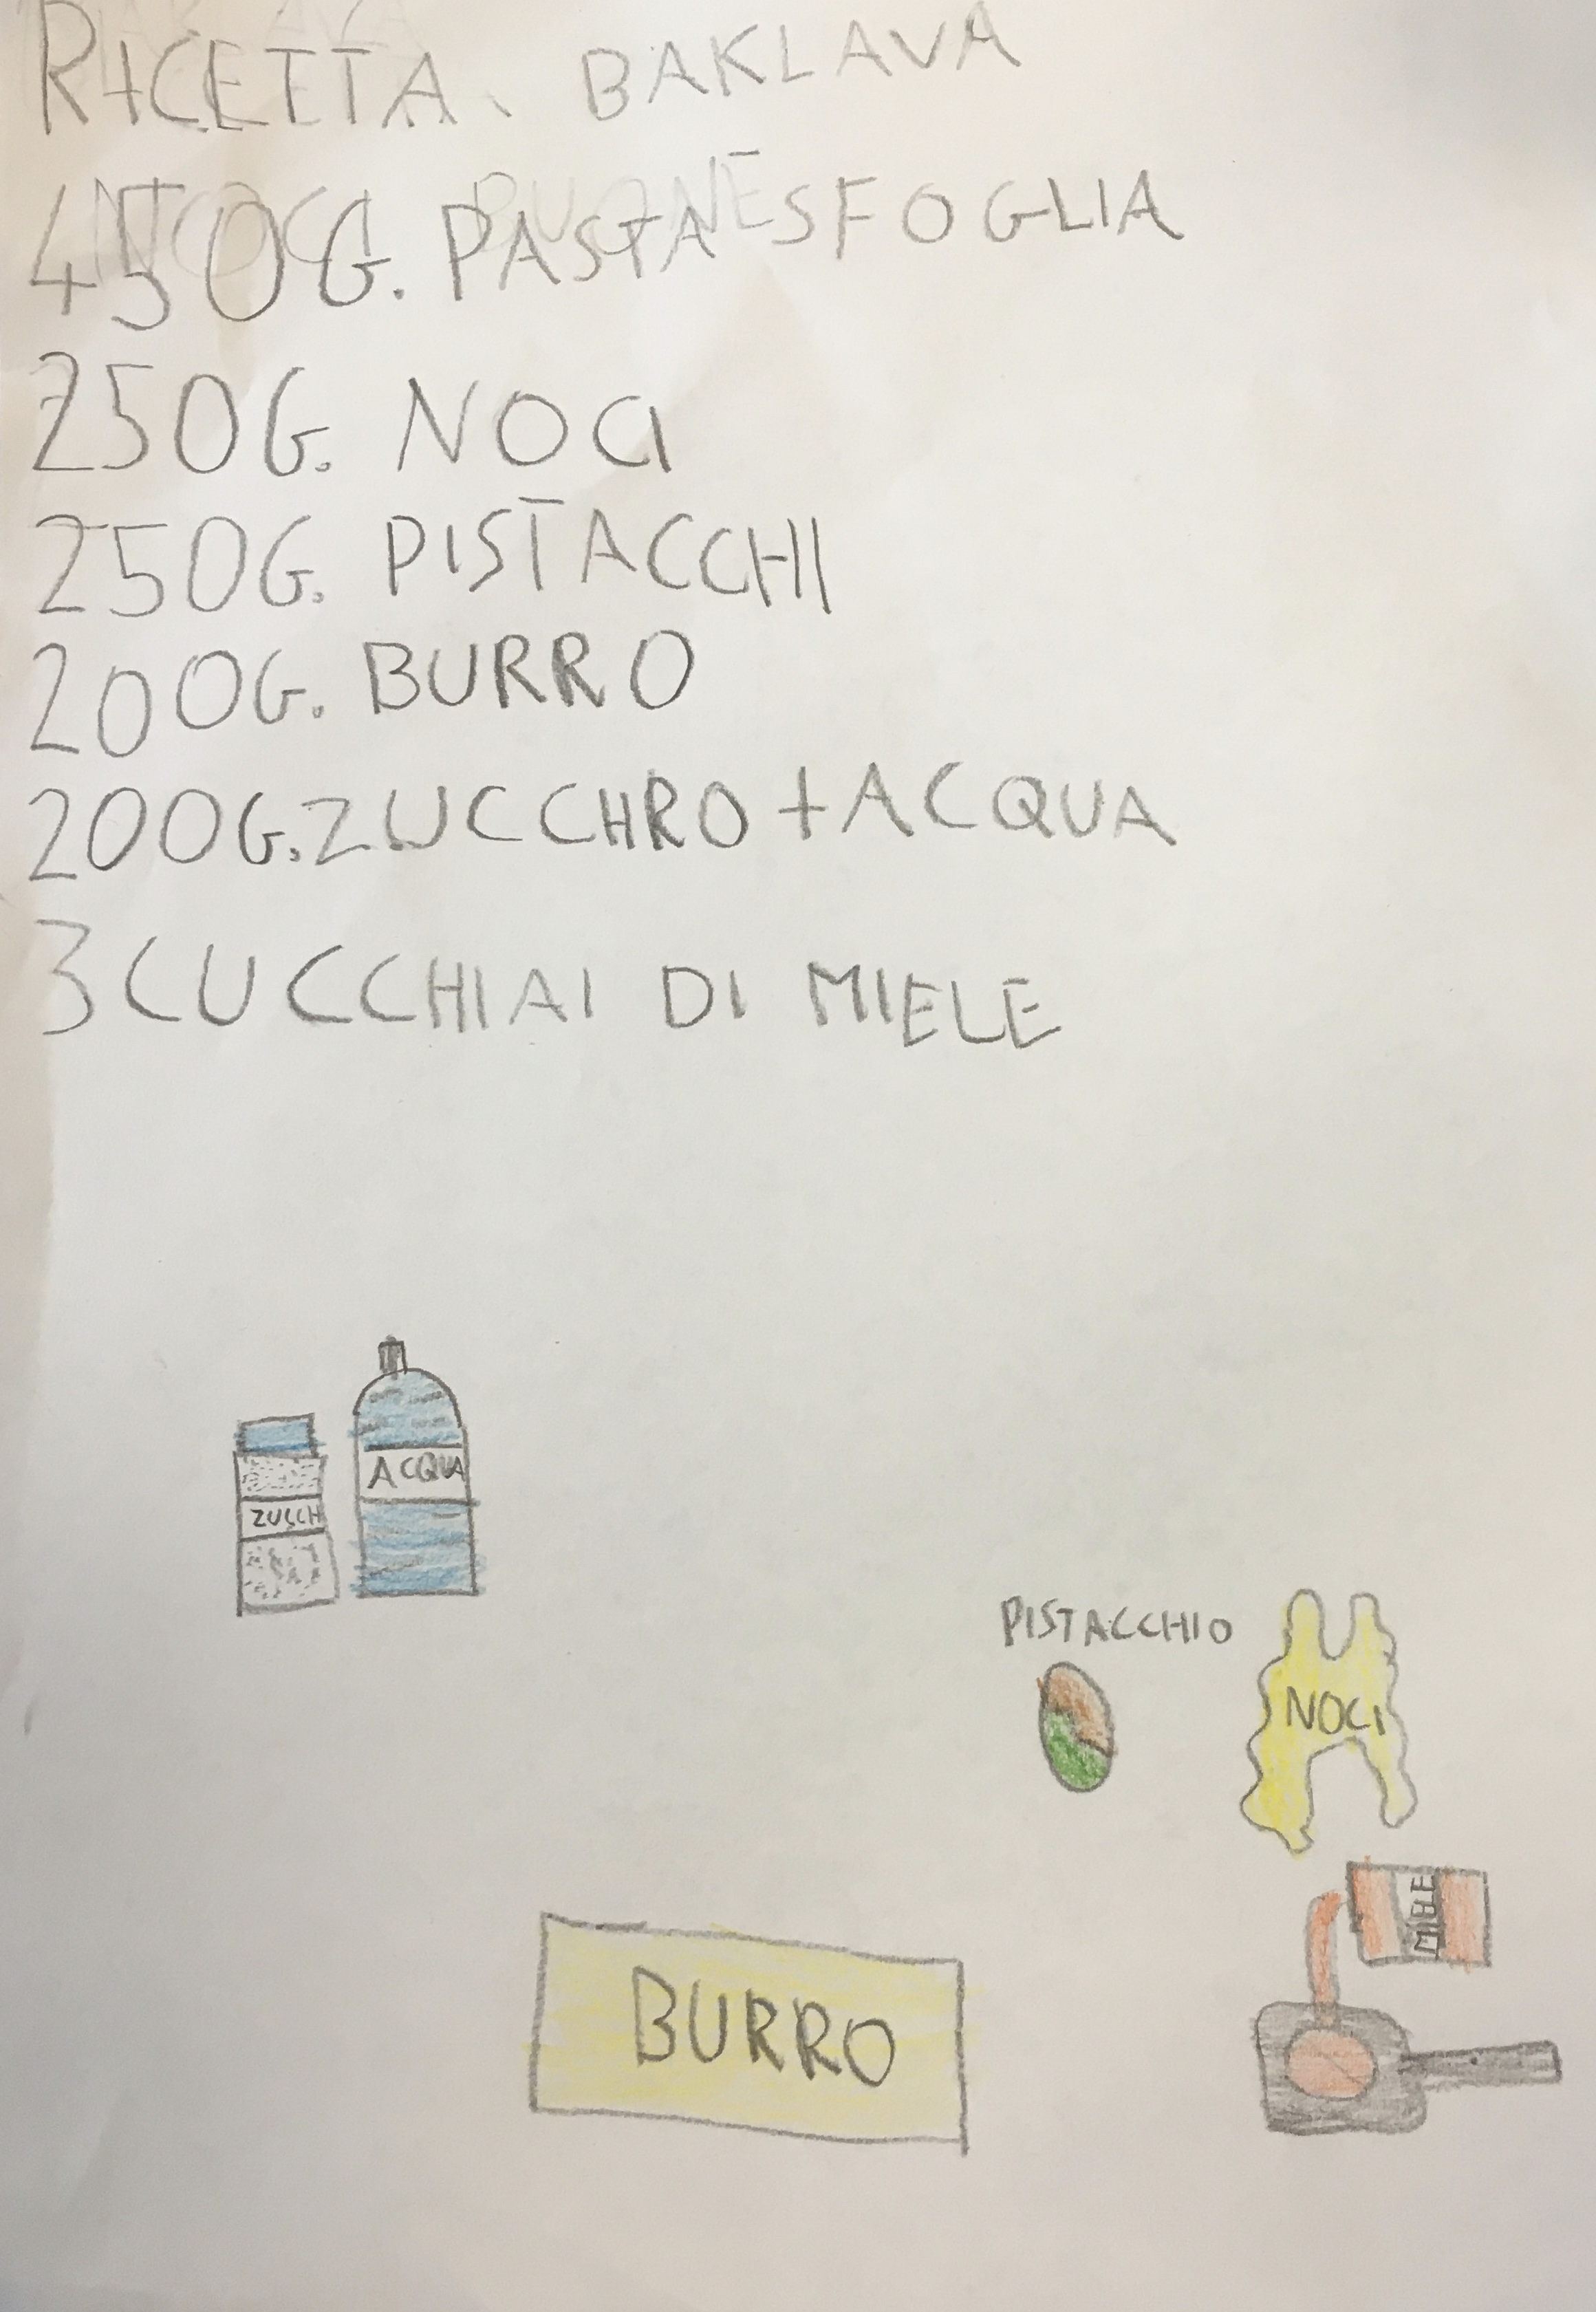 RICETTA. BAKLAVA
450G. PASTA SFOGLIA
250G. NOCI
250G. PISTACCHI
200G. BURRO
200G. ZUCCHRO + ACQUA
3 CUCCHIAI DI MIELE
ACQUA
ZUCCH
PISTACCHIO
NOCI
MIELE
BURRO